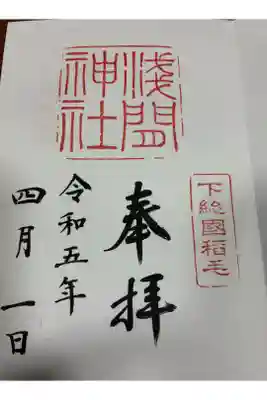 下総國稲毛
奉拝
浅間
神社
令和五年
四月一日